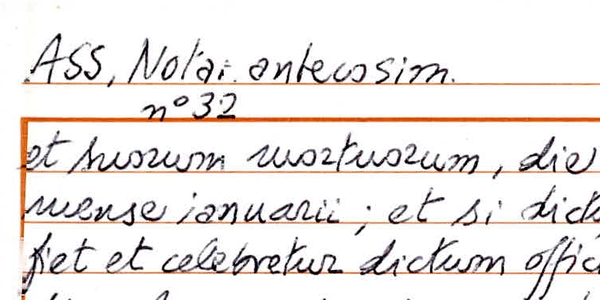 ASS, Notai antecosim.
n° 32
et suorum mortuorum, die
mense ianuarii; et si dict
fiet et celebretur dictum offic